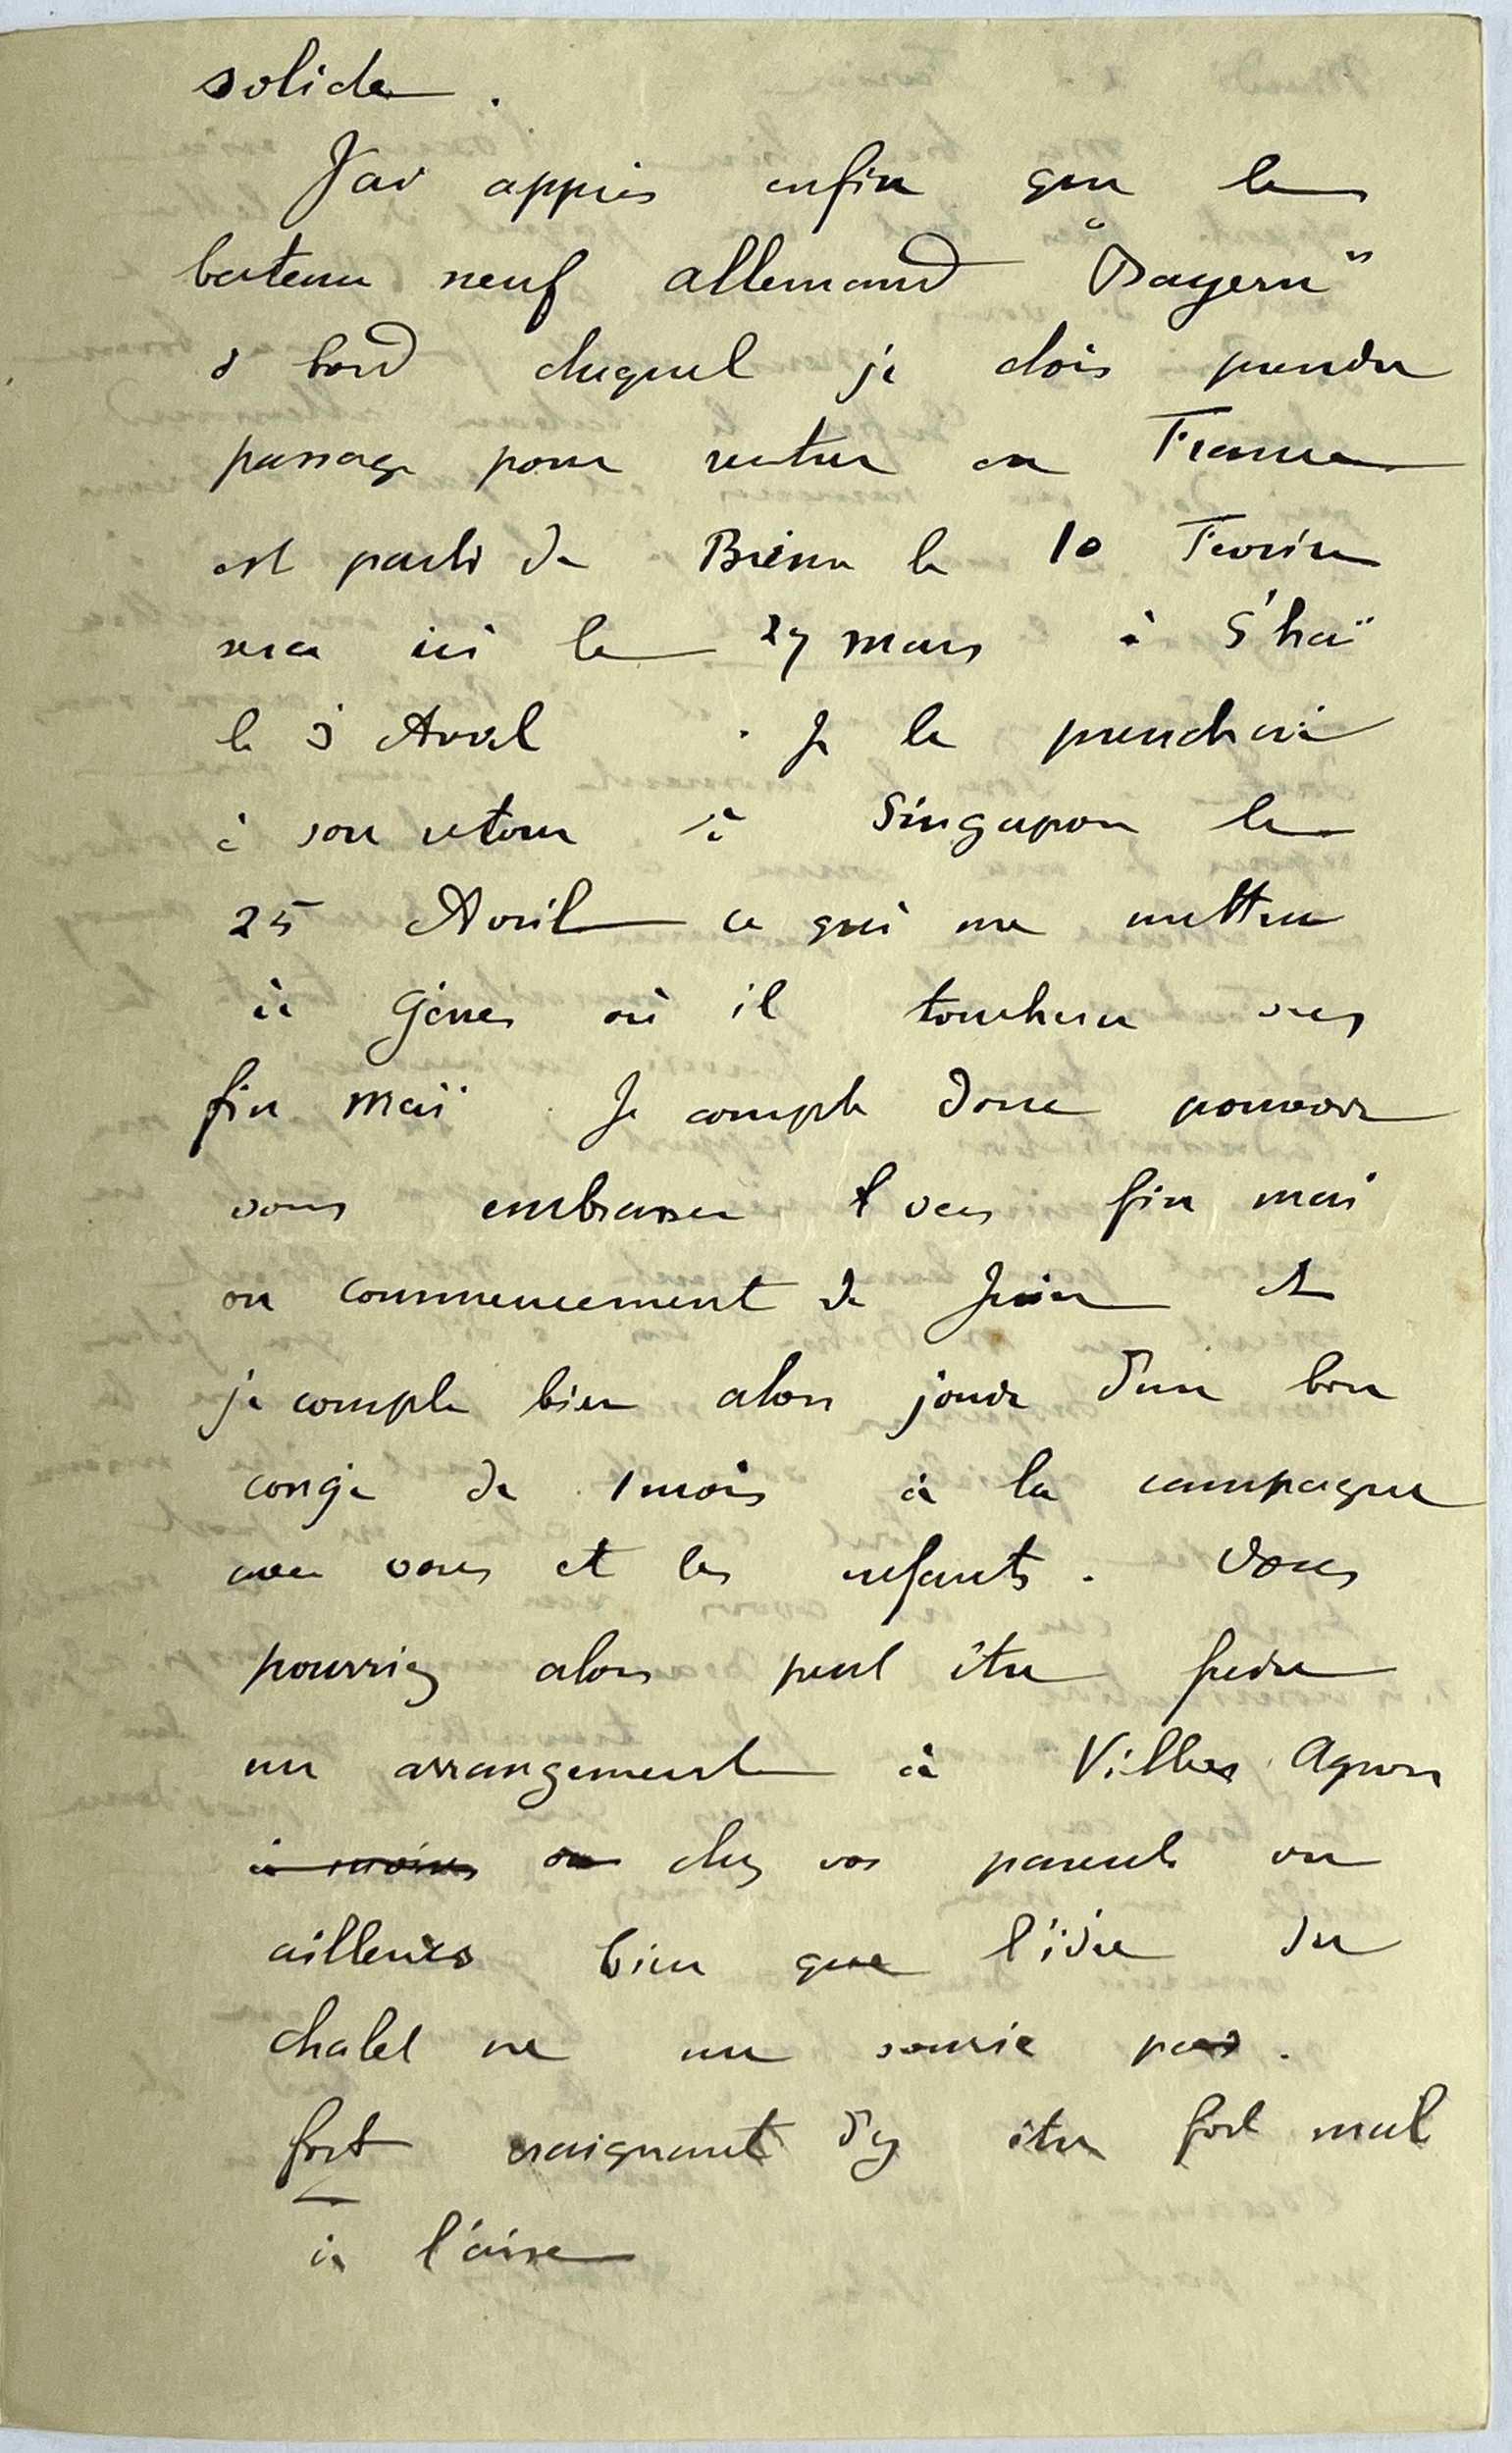 solide.
J'ai appris enfin que le
bateau neuf allemand "Bayern"
à bord duquel je dois prendre
passage pour rentrer en France
est parti de Brême le 10 Fevrier
sera ici le 27 mars à S'haï
le 3 Avril. Je le prendrai
à son retour à Singapore le
25 Avril ce qui me mettra
à Gênes où il touchera vers
fin mai. Je compte donc pouvoir
vous embrasser vers fin mai
ou commencement de Juin et
je compte bien alors jouir d'un bon
congé de 1 mois à la campagne
avec vous et les enfants. Vous
pourriez alors peut être faire
un arrangement à Villers Agron
à moins ou chez vos parents ou
ailleurs bien que l'idée du
chalet ne me sourie pas.
fort craignant d'y être fort mal
à l'aise